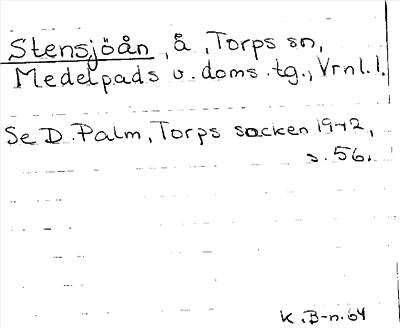 Stensjöån, å, Torps sn,
Medelpads v. doms. tg., Vrnl. l.
Se D. Palm, Torps socken 1942,
s. 56.
K. B-n. 64